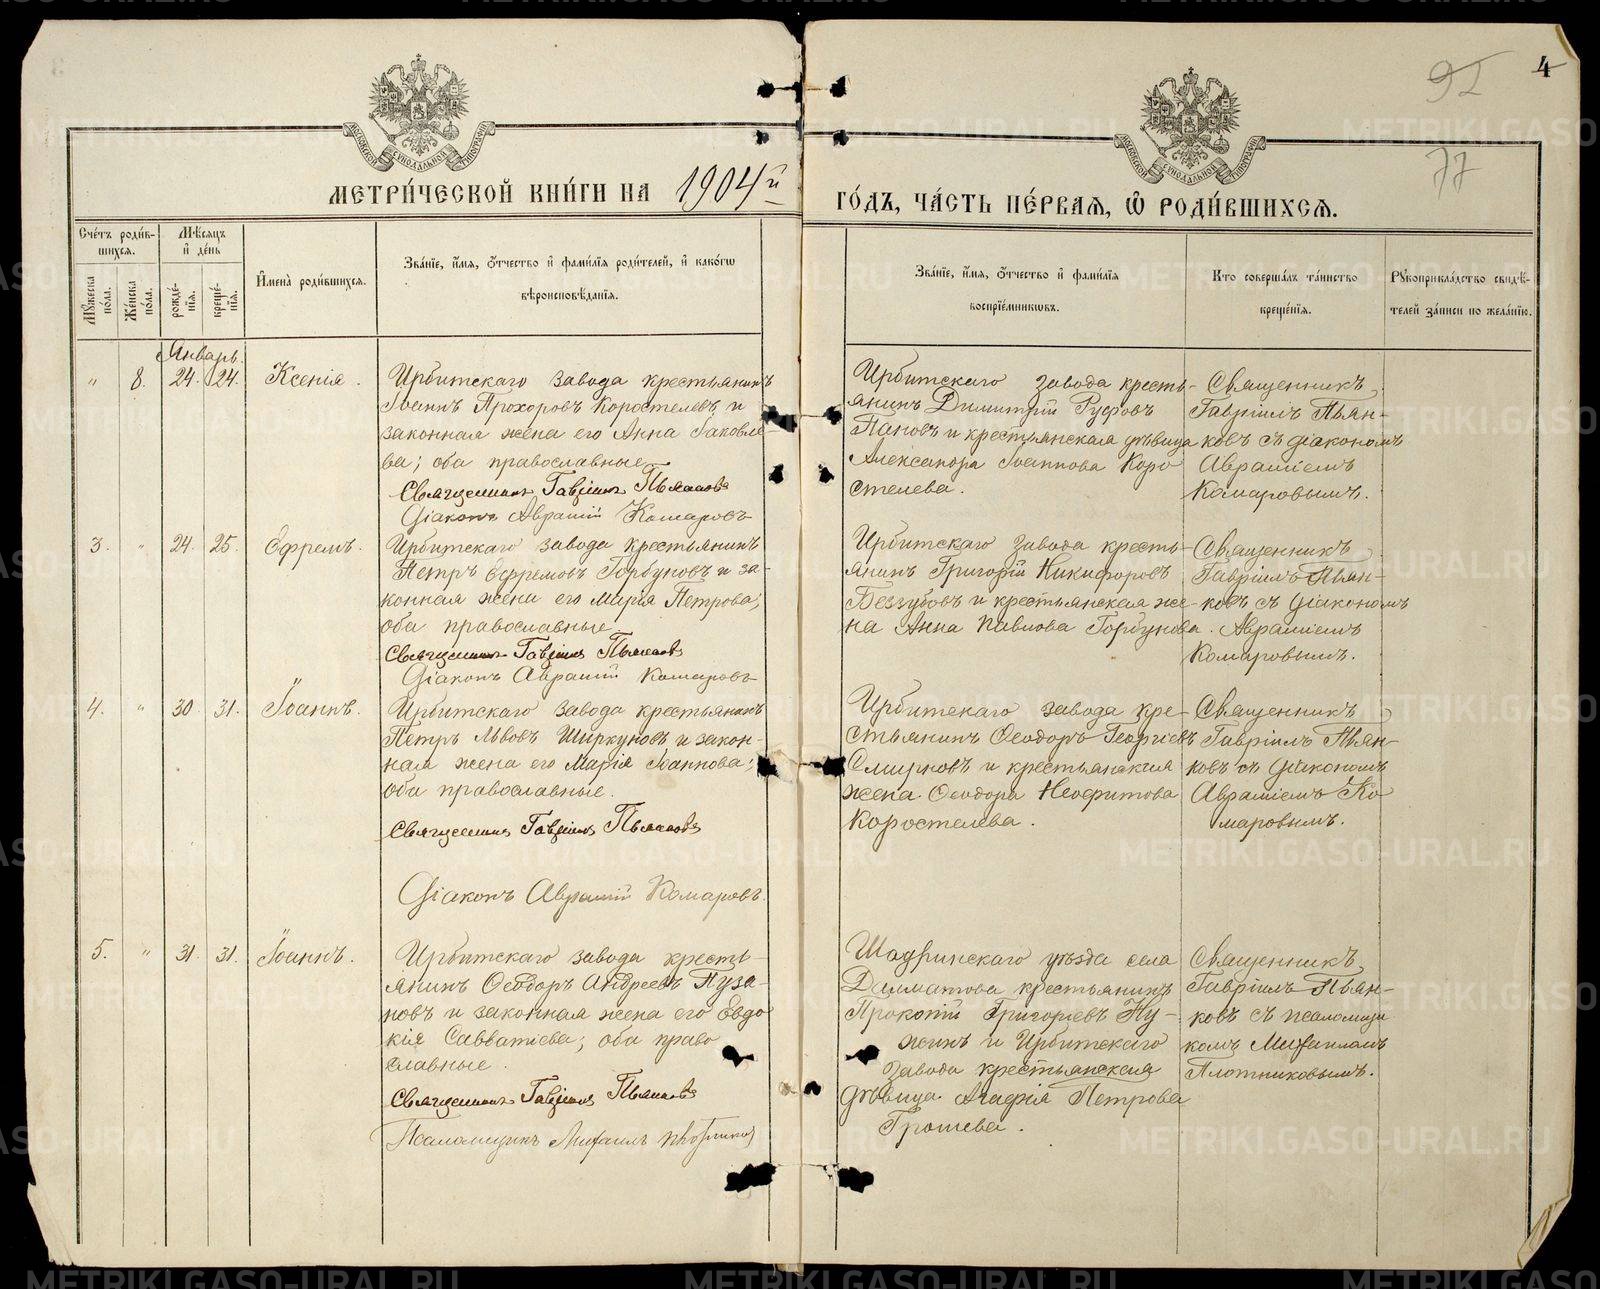 4
92
77
МОСКОВСКОЙ СѴНОДАЛЬНОЙ ТИПОГРАФІИ
МОСКОВСКОЙ СѴНОДАЛЬНОЙ ТИПОГРАФІИ
МЕТРИ́ЧЕСКОЙ КНИ́ГИ НА 1904й
ГО́ДЪ, ЧА́СТЬ ПЕ́РВАѦ, Ѡ РОДИ́ВШИХСѦ.
Сче́тъ роди́в-
шихсѧ.
Мꙋ́жеска
по́ла.
Же́нска
по́ла.
Мѣ́сѧцъ
и҆ де́нь
рожде́-
нїѧ.
креще́-
нїѧ.
И҆мена̀ роди́вшихсѧ.
Зва́нїе, и҆́мѧ, ѻ҆́тчество и҆ фами́лїѧ роди́телей, и҆ како́гѡ
вѣроисповѣ́данїѧ.
Зва́нїе, и҆́мѧ, ѻ҆́тчество и҆ фами́лїѧ
воспрїе́мникѡвъ.
Кто̀ соверша́лъ та́инство
креще́нїѧ.
Рꙋкоприкла́дство свидѣ́-
телей за́писи по жела́нїю.
Январь.
" 8. 24. 24. Ксенія.
Ирбитскаго завода крестьянинъ
Іоаннъ Прохоровъ Коростелевъ и
законная жена его Анна Іаковле-
ва; оба православные
Священникъ Гавріилъ Пьянковъ
Діаконъ Авраамій Комаровъ
Ирбитскаго завода кресть-
янинъ Димитрій Руфовъ
Пановъ и крестьянская дѣвица
Александра Іоаннова Коро
стелева.
Священникъ
Гавріилъ Пьян-
ковъ съ діакономъ
Авраміемъ
Комаровымъ.
3. " 24. 25. Ефремъ.
Ирбитскаго завода крестьянинъ
Петръ Ефремовъ Горбуновъ и за-
конная жена его Марія Петрова;
оба православные
Священникъ Гавріилъ Пьянковъ
Діаконъ Аврамій Комаровъ
Ирбитскаго завода кресть-
янинъ Григорій Никифоровъ
Беззубовъ и крестьянская же-
на Анна Павлова Горбунова.
Священникъ
Гавріилъ Пьян-
ковъ съ діакономъ
Авраміемъ
Комаровымъ.
4. " 30. 31. Іоаннъ.
Ирбитскаго завода крестьянинъ
Петръ Львовъ Ширкуновъ и закон-
ная жена его Марія Іоаннова;
оба православные.
Священникъ Гавріилъ Пьянковъ
Діаконъ Аврамій Комаровъ.
Ирбитскаго завода кре-
стьянинъ Ѳеодоръ Георгіевъ
Смирновъ и крестьянская
жена Ѳеодора Неофитова
Коростелева.
Священникъ
Гавріилъ Пьян-
ковъ съ діакономъ
Авраміемъ Ко
маровымъ.
5. " 31. 31. Іоаннъ.
Ирбитскаго завода кресть-
янинъ Ѳеодоръ Андреевъ Пуза-
новъ и законная жена его Евдо
кія Савватіева; оба право
славные.
Священникъ Гавріилъ Пьянковъ
Псаломщикъ Михаилъ Плотниковъ
Шадринскаго уѣзда села
Далматова крестьянинъ
Прокопій Григорьевъ Ну-
жинъ и Ирбитскаго
завода крестьянская
дѣвица Агафія Петрова
Грошева.
Священникъ
Гавріилъ Пьян-
ковъ съ псаломщи
комъ Михаиломъ
Плотниковымъ.
METRIKI.GASO-URAL.RU